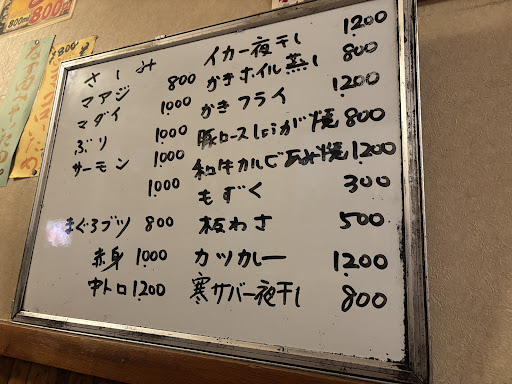 800ml
800円
さしみ
マアジ 800
マダイ 1000
ぶり 1000
サーモン 1000
1000
まぐろブツ 800
赤身 1000
中トロ 1200
イカ一夜干し 1200
かきホイル蒸し 800
かきフライ 1200
豚ロースしょうが焼 800
和牛カルビあみ焼 1200
もずく 300
板わさ 500
カツカレー 1200
寒サバ一夜干し 800